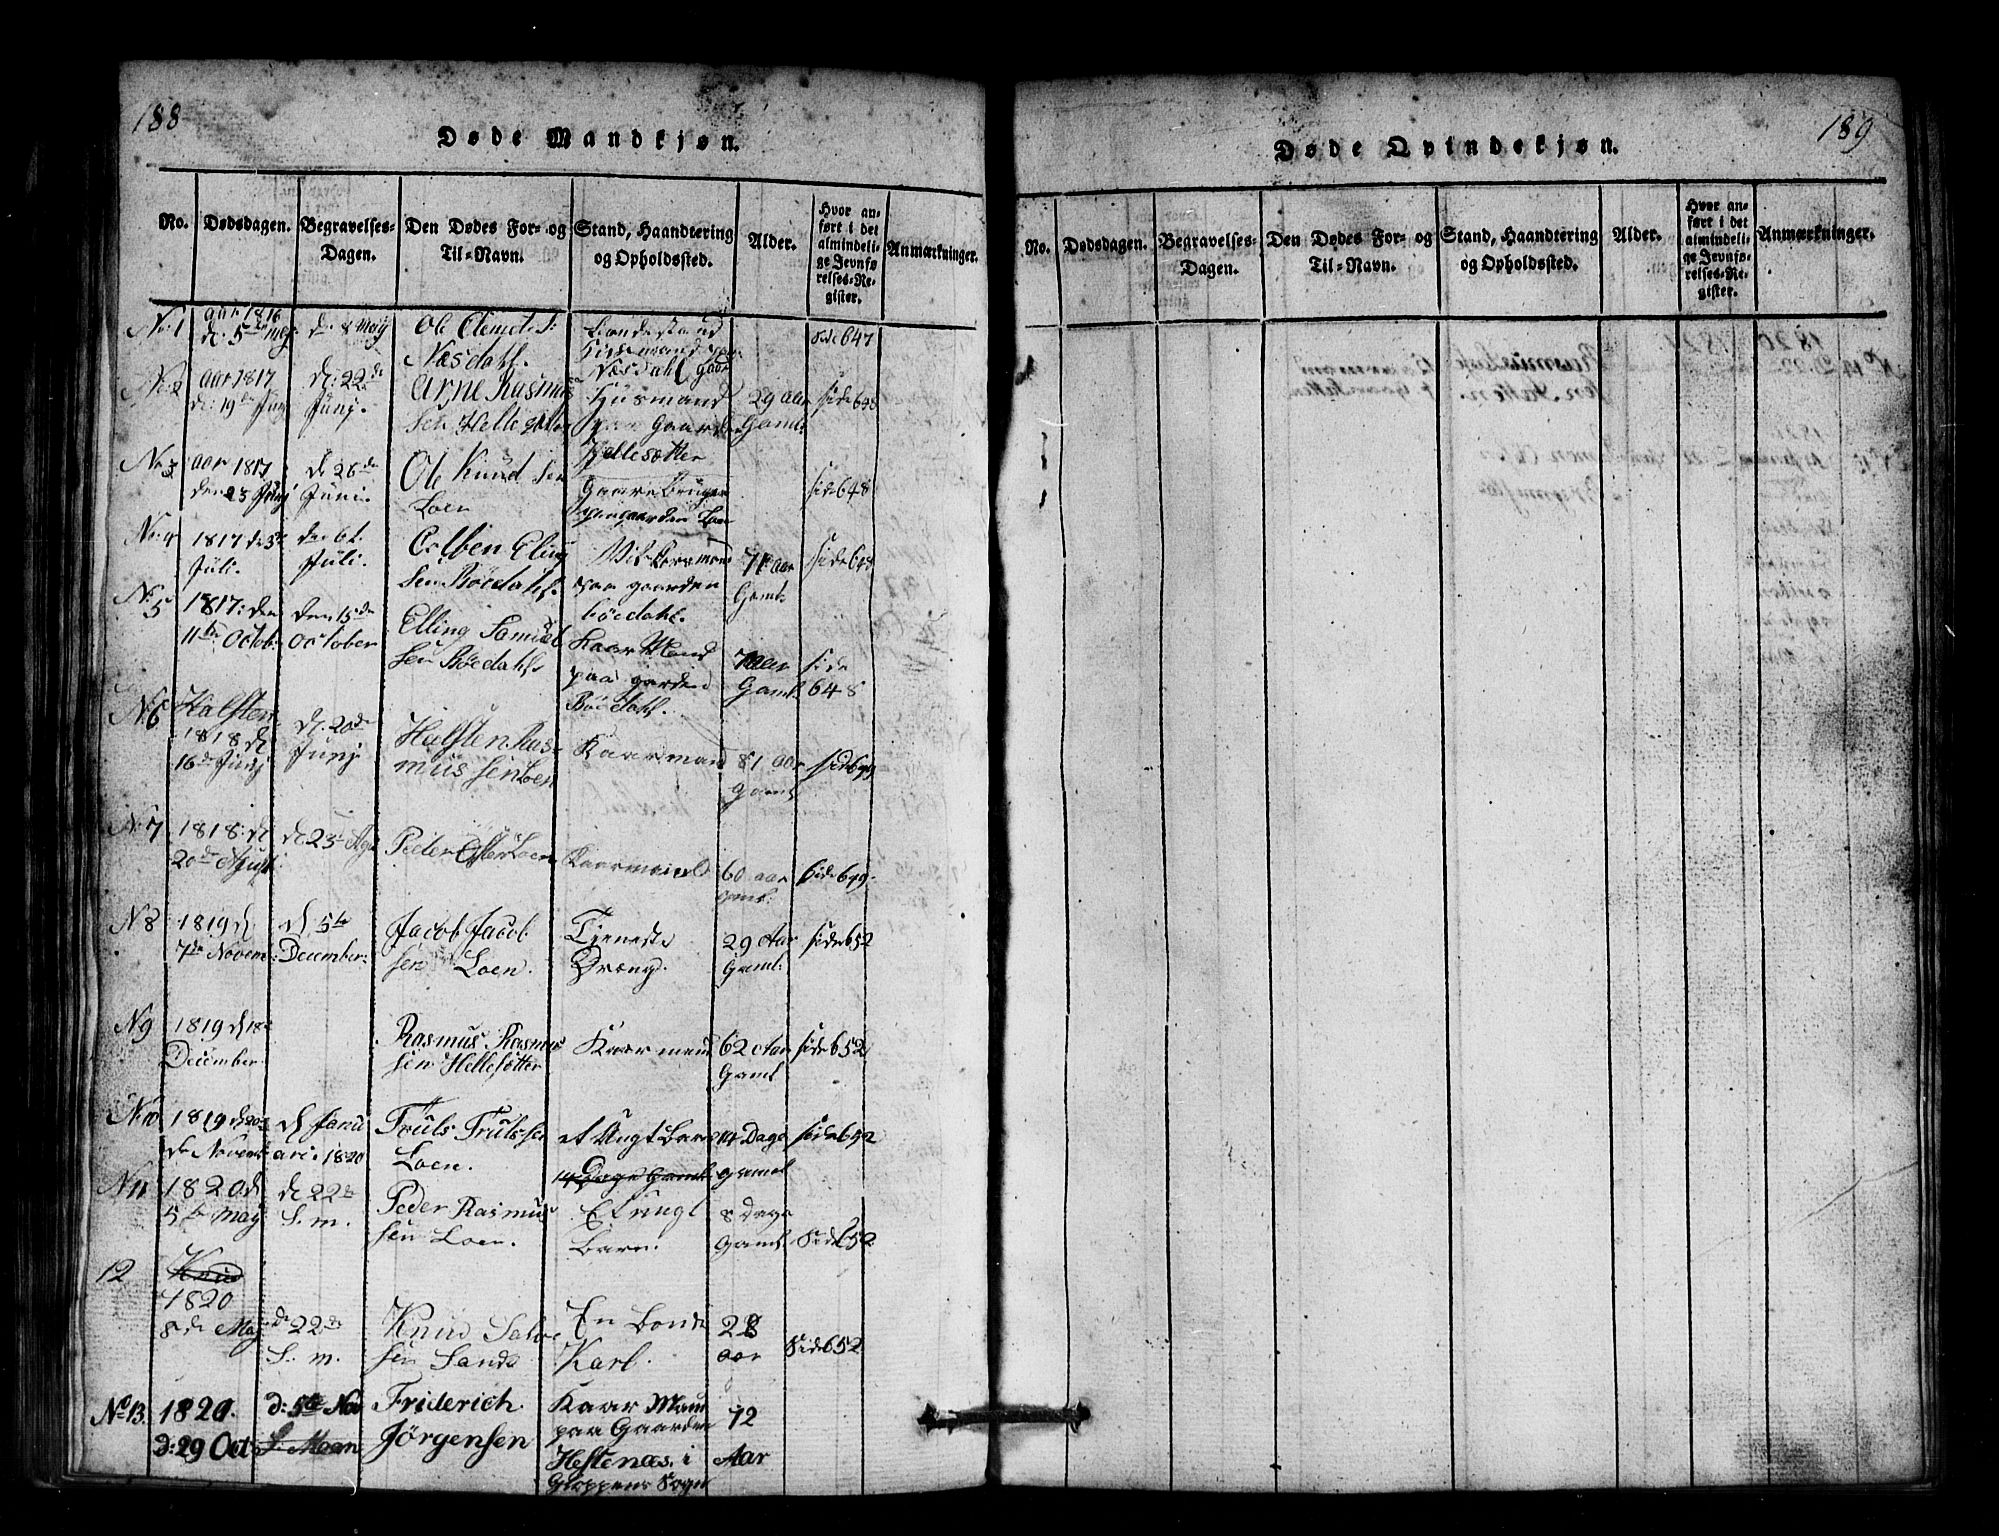 188
Døde Mandkjøn.
No.
Dødsdagen.
Begravelses-
Dagen.
Den Dødes For- og
Til-Navn.
Stand, Haandtering
og Opholdssted.
Alder.
Hvor an-
ført i det
almindeli-
ge Jevnfø-
relses-Re-
gister.
Anmærkninger.
No. 1
aar 1816
d. 5te Maj
d. 8 Maj
Ole
Næsdahl.
Næsdahl gaar
side 647
No. 2
aar 1817
d: 19de Junj
d: 22de
Junj.
Arne Rasmus
sen Hellesætter
Huusmand
paa Gaarden
Hellesætter
29 aar
Gaml:
side 648
No. 3
aar 1817
den 23 Junj
d 26de
Juni.
Ole Knud sen
Loen
Gaardbruger
paa gaarden Loen
side 648
No. 4
1817 d 3de
Juli.
den 6t.
Juli.
Colben Eling
sen Bödahl.
paa gaarden
Bödahl.
aar
Gaml.
side 648
No. 5
1817: den
11te Octob:
den 15de
October
Elling Samuel
sen Bödahl.
Kaar Mand
paa garden
Bödahl.
aar
Gaml.
side
648
No 6
Halsten
1818 d
16de Junj
d. 20de
Junj.
Halsten Ras-
mussen Loen
Kaarmand
81 aar
gaml
side 649
No. 7
1818: d
20de Agust
d 23 Agu
Peder Loen
Kaarmand
60 aar
gaml.
side 649.
N 8
1819 d
7de Novem:
d. 5te
December:
Jacob Jacob
sen Loen.
Tieneste
Dreng.
29 Aar
Gaml:
side 652
N 9
1819 d 18de
December.
Rasmus Rasmus
sen Hellesötter
Kaarmand
62 Aar
Gaml
side 652
No. 10
1819 d 20
de Novem
d Janu
ari 1820
Truls Truls sen
Loen.
et Ungt Barn
14 Dage Gaml.
14 Dage
gamel
side 652
N 11
1820 d.
5te Maj
d 22de
S. m.
Peder Rasmus
sen Loen.
Et ungt
Barn.
8 Dage
Gaml.
Side 652
12
Knud
1820
8de Maj
d 22de
S. m.
Knud
sen Sande
En Bonde
Karl.
28
aar
Side 652
No. 13.
1820.
d: 29 Oct
d: 5te Nov
S. Maan
Friderich
Jörgensen
Kaar Mand
paa Gaarden
Hestenæs i
Gloppens Sogn
72
Aar
189
Døde Qvindekjøn.
No.
Dødsdagen.
Begravelses-
Dagen.
Den Dødes For- og
Til-Navn.
Stand, Haandtering
og Opholdssted.
Alder.
Hvor an-
ført i det
almindeli-
ge Jevnfø-
relses-Re-
gister.
Anmærkninger.